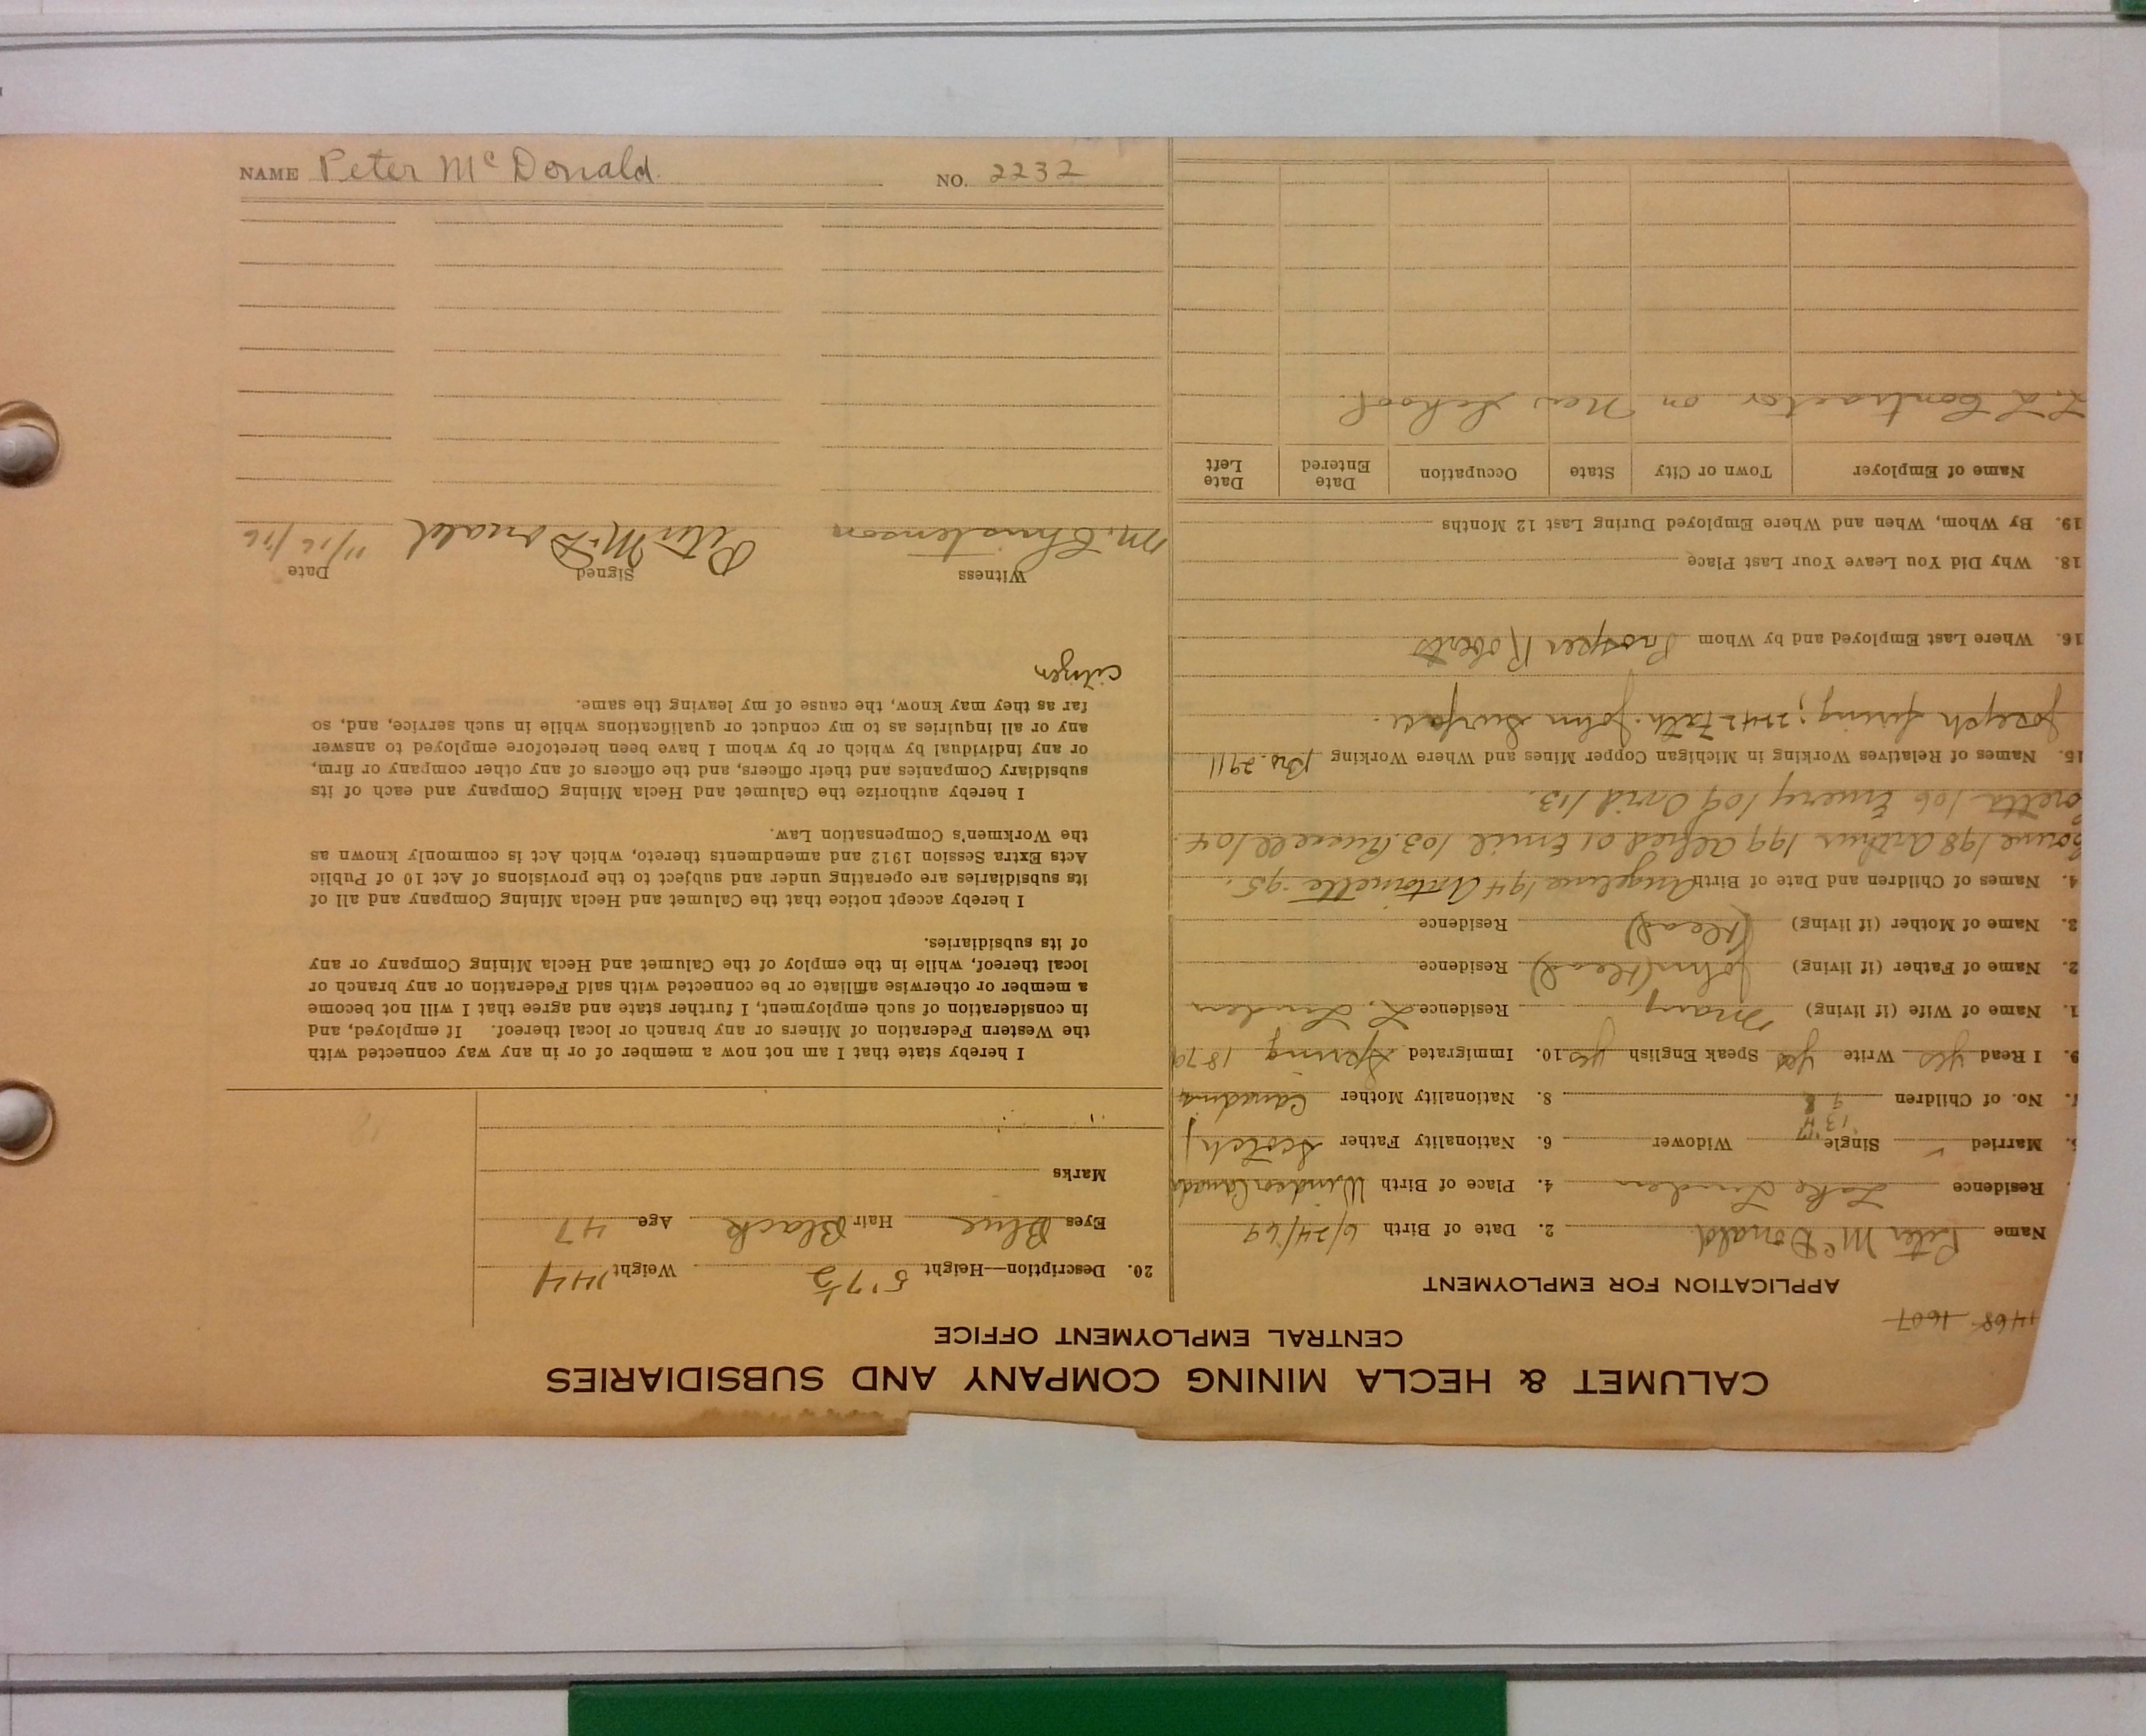 NAME Peter McDonald. NO. 2232
CALUMET & HECLA MINING COMPANY AND SUBSIDIARIES
CENTRAL EMPLOYMENT OFFICE
1468 1607
APPLICATION FOR EMPLOYMENT
Name Peter McDonald. 2. Date of Birth 6/24/69
Residence Lake Linden 4. Place of Birth Windsor Canada
Married ✓ Single Widower 6. Nationality Father Scotch
'13 '17
7. No. of Children 9 8 8. Nationality Mother Canadian
9. I Read yes Write yes Speak English yes 10. Immigrated Spring 1879
1. Name of Wife (if living) Mary Residence L. Linden
2. Name of Father (if living) John (dead) Residence
3. Name of Mother (if living) (dead) Residence
4. Names of Children and Date of Birth Angeline 194 Antoinette 95.
198 Arthur 199 Alfred 01 Emil 103 Russell 104.
106 Emery 109 Orvid 113.
15. Names of Relatives Working in Michigan Copper Mines and Where Working Bro. 2911
Joseph firing; 2242 Fath. John Surface.
16. Where Last Employed and by Whom Prosper Roberts
18. Why Did You Leave Your Last Place
19. By Whom, When and Where Employed During Last 12 Months
Name of Employer Town or City State Occupation Date Entered Date Left
L. L. Contractor on New School.
20. Description—Height 5'7½ Weight 144
Eyes Blue Hair Black Age 47
Marks
I hereby state that I am not now a member of or in any way connected with
the Western Federation of Miners or any branch or local thereof. If employed, and
in consideration of such employment, I further state and agree that I will not become
a member or otherwise affiliate or be connected with said Federation or any branch or
local thereof, while in the employ of the Calumet and Hecla Mining Company or any
of its subsidiaries.
I hereby accept notice that the Calumet and Hecla Mining Company and all of
its subsidiaries are operating under and subject to the provisions of Act 10 of Public
Acts Extra Session 1912 and amendments thereto, which Act is commonly known as
the Workmen's Compensation Law.
I hereby authorize the Calumet and Hecla Mining Company and each of its
subsidiary Companies and their officers, and the officers of any other company or firm,
or any individual by which or by whom I have been heretofore employed to answer
any or all inquiries as to my conduct or qualifications while in such service, and, so
far as they may know, the cause of my leaving the same.
citizen
Witness Signed Date
M. Christenson Peter McDonald 11/16/16